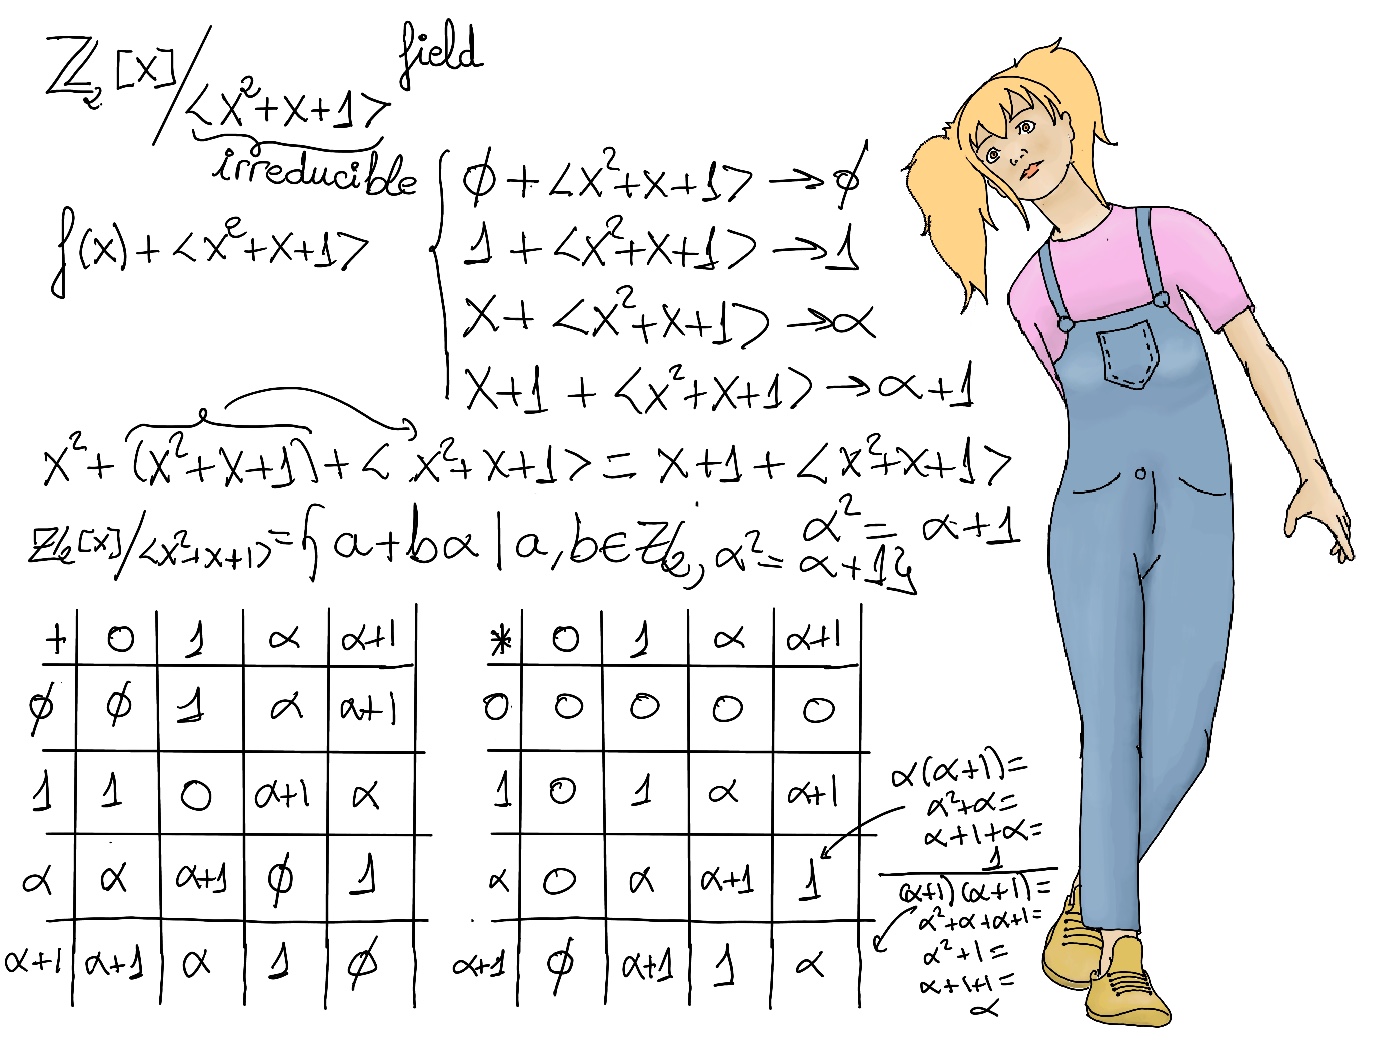 ℤ₂[x]/<x²+x+1> field
irreducible
f(x)+<x²+x+1>
ϕ+<x²+x+1>→ϕ
1+<x²+x+1>→1
x+<x²+x+1>→α
x+1+<x²+x+1>→α+1
x²+(x²+x+1)+<x²+x+1>=x+1+<x²+x+1>
α²=α+1
ℤ₂[x]/<x²+x+1>={a+bα|a,b∈ℤ₂, α²=α+1}
+ 0 1 α α+1
ϕ ϕ 1 α α+1
1 1 0 α+1 α
α α α+1 ϕ 1
α+1 α+1 α 1 ϕ
* 0 1 α α+1
0 0 0 0 0
1 0 1 α α+1
α 0 α α+1 1
α+1 ϕ α+1 1 α
α(α+1)=
α²+α=
α+1+α=
1
(α+1)(α+1)=
α²+α+α+1=
α²+1=
α+1+1=
α